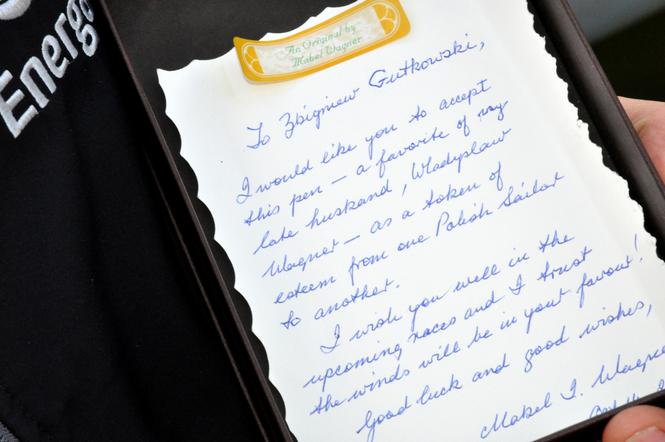 Energ
An Original by
Mabel Wagner
To Zbigniew Gutkowski,
I would like you to accept
this pen — a favorite of my
late husband, Wladyslaw
Wagner — as a token of
esteem from one Polish Sailor
to another.
I wish you well in the
upcoming races and I trust
the winds will be in your favour!
Good luck and good wishes,
Mabel I. Wagne